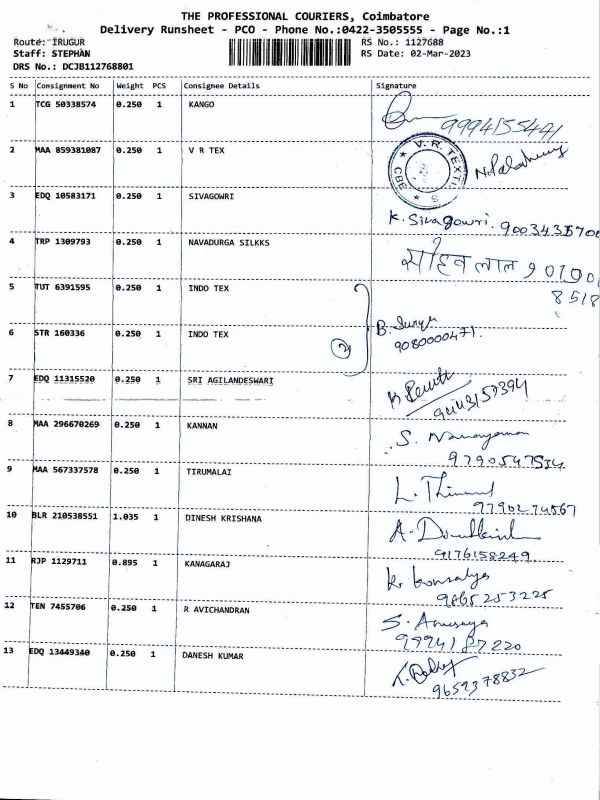 THE PROFESSIONAL COURIERS, Coimbatore
Delivery Runsheet - PCO - Phone No.:0422-3505555 - Page No.:1
Route: IRUGUR RS No.: 1127688
Staff: STEPHAN RS Date: 02-Mar-2023
DRS No.: DCJB112768801
S No Consignment No Weight PCS Consignee Details Signature
1 TCG 50338574 0.250 1 KANGO
9994155441
2 MAA 859381087 0.250 1 V R TEX
V. R. TEXTIL CBE
3 EDQ 10583171 0.250 1 SIVAGOWRI
K. Sivagowri. 9003435700
4 TRP 1309793 0.250 1 NAVADURGA SILKKS
सोहन लाल 90700
8518
5 TUT 6391595 0.250 1 INDO TEX
B. Surya
6 STR 160336 0.250 1 INDO TEX
2 9080000471.
7 EDQ 11315520 0.250 1 SRI AGILANDESWARI
9443157394
8 MAA 296670269 0.250 1 KANNAN
S. Narayanan
9790547534
9 MAA 567337578 0.250 1 TIRUMALAI
L.
9790274567
10 BLR 210538551 1.035 1 DINESH KRISHANA
A.
9176158249.
11 RJP 1129711 0.895 1 KANAGARAJ
K. Kousalya
9865253225
12 TEN 7455706 0.250 1 R AVICHANDRAN
S. Anusuya
9994187220
13 EDQ 13449340 0.250 1 DANESH KUMAR
9659378832